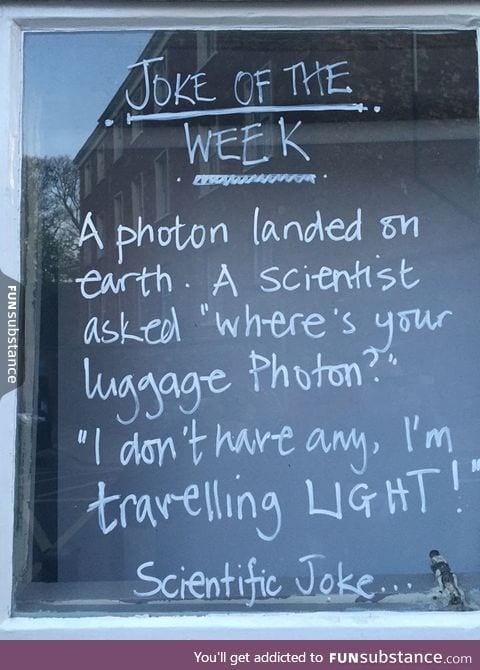 JOKE OF THE
WEEK
A photon landed on
earth. A scientist
asked "where's your
luggage Photon?"
"I don't have any, I'm
travelling LIGHT!"
Scientific Joke...
FUNsubstance
You'll get addicted to FUNsubstance.com